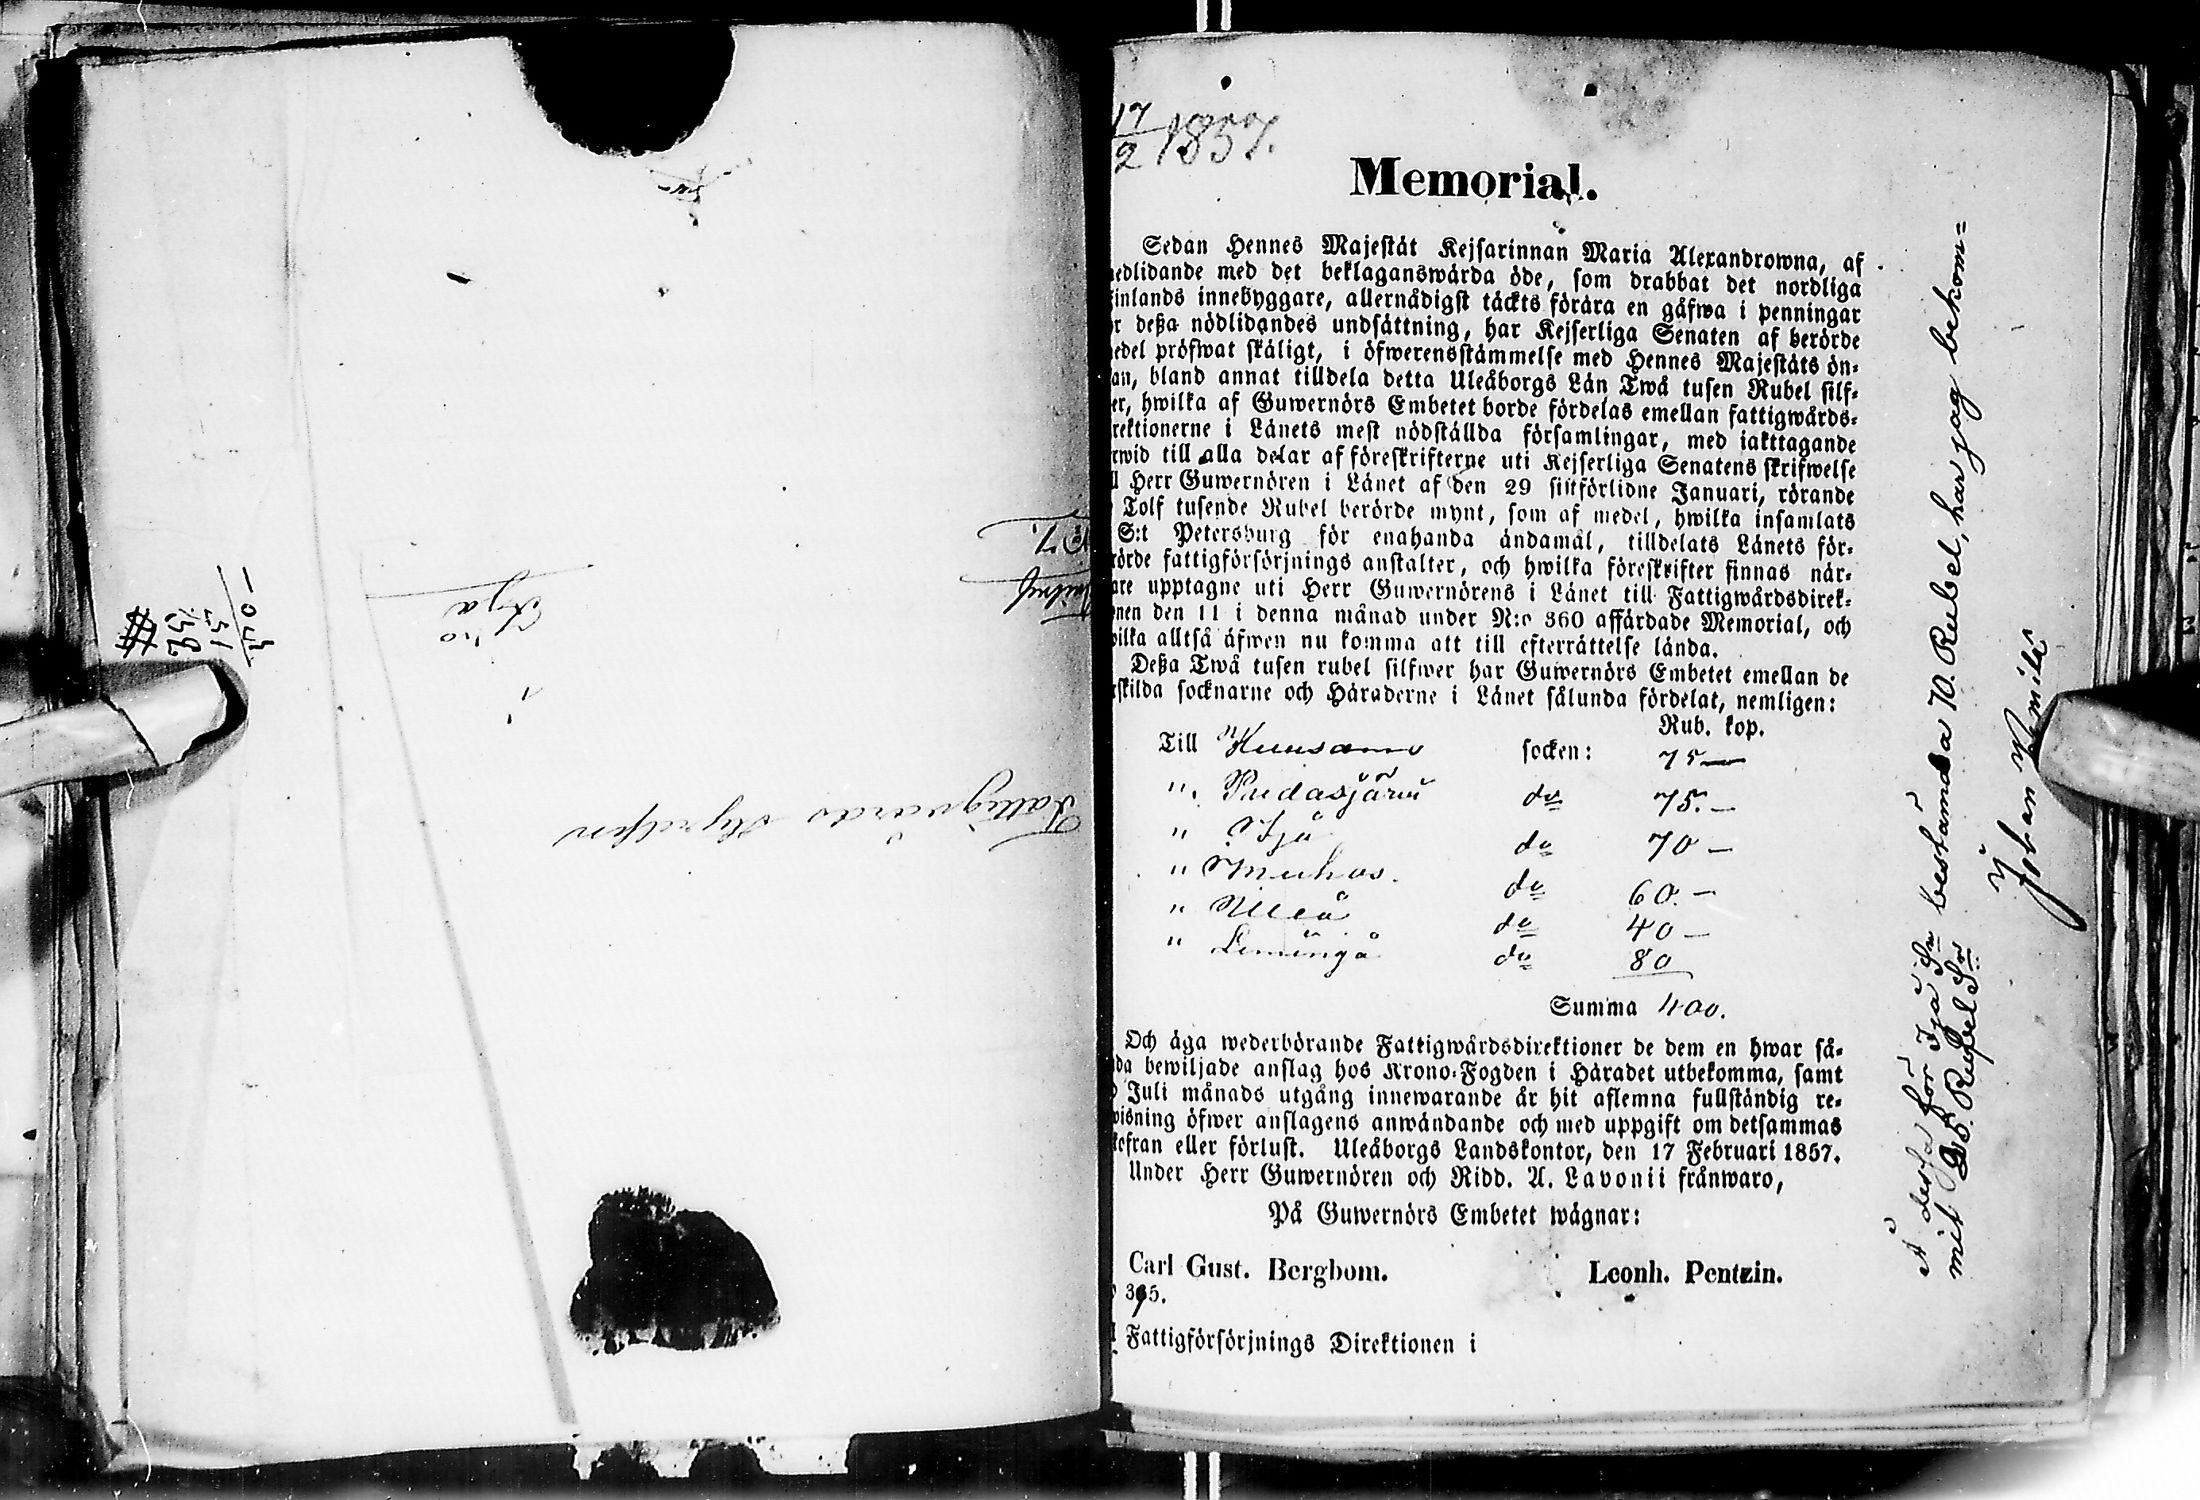 Fattigvårds styrelsen
i
Ijo
17/2 1857.
Memorial.
Sedan Hennes Majestät Kejsarinnan Maria Alexandrowna, af
medlidande med det beklaganswärda öde, som drabbat det nordliga
Finlands innebyggare, allernådigst täckts förära en gåfwa i penningar
för deßa nödlidandes undsättning, har Kejserliga Senaten af berörde
medel pröfwat skäligt, i öfwerensstämmelse med Hennes Majestäts ön-
an, bland annat tilldela detta Uleåborgs Län Twå tusen Rubel silf-
er, hwilka af Guwernörs Embetet borde fördelas emellan fattigwårds-
rektionerne i Länets mest nödställda församlingar, med iakttagande
rwid till alla delar af föreskrifterne uti Kejserliga Senatens skrifwelse
ll Herr Guwernören i Länet af den 29 sistförlidne Januari, rörande
Tolf tusende Rubel berörde mynt, som af medel, hwilka insamlats
S:t Petersburg för enahanda ändamål, tilldelats Länets för-
rörde fattigförsörjnings anstalter, och hwilka föreskrifter finnas när-
are upptagne uti Herr Guwernörens i Länet till Fattigwårdsdirek-
onen den 11 i denna månad under N:o 360 affärdade Memorial, och
wilka alltså äfwen nu komma att till efterrättelse lända.
Deßa Twå tusen rubel silfwer har Guwernörs Embetet emellan de
rskilda socknarne och Häraderne i Länet sålunda fördelat, nemligen:
Rub. kop.
Till Kuusamo socken: 75 —
" Pudasjärvi do 75. —
" Ijo do 70 —
" Muhos. do 60. —
" Uleå do 40 —
" Limingo do 80
Summa 400.
Och äga wederbörande Fattigwårdsdirektioner de dem en hwar så-
da bewiljade anslag hos Krono-Fogden i Häradet utbekomma, samt
Juli månads utgång innewarande år hit aflemna fullständig re-
wisning öfwer anslagens anwändande och med uppgift om detsammas
kofran eller förlust. Uleåborgs Landskontor, den 17 Februari 1857.
Under Herr Guwernören och Ridd. A. Lavonii frånwaro,
På Guwernörs Embetet wägnar:
Carl Gust. Bergbom. Leonh. Pentzin.
365.
Fattigförsörjnings Direktionen i
Å dessa för Ijå Sn bestämda 70. Rubel, har jag bekom-
mit 35. Rubel Sr
Johan